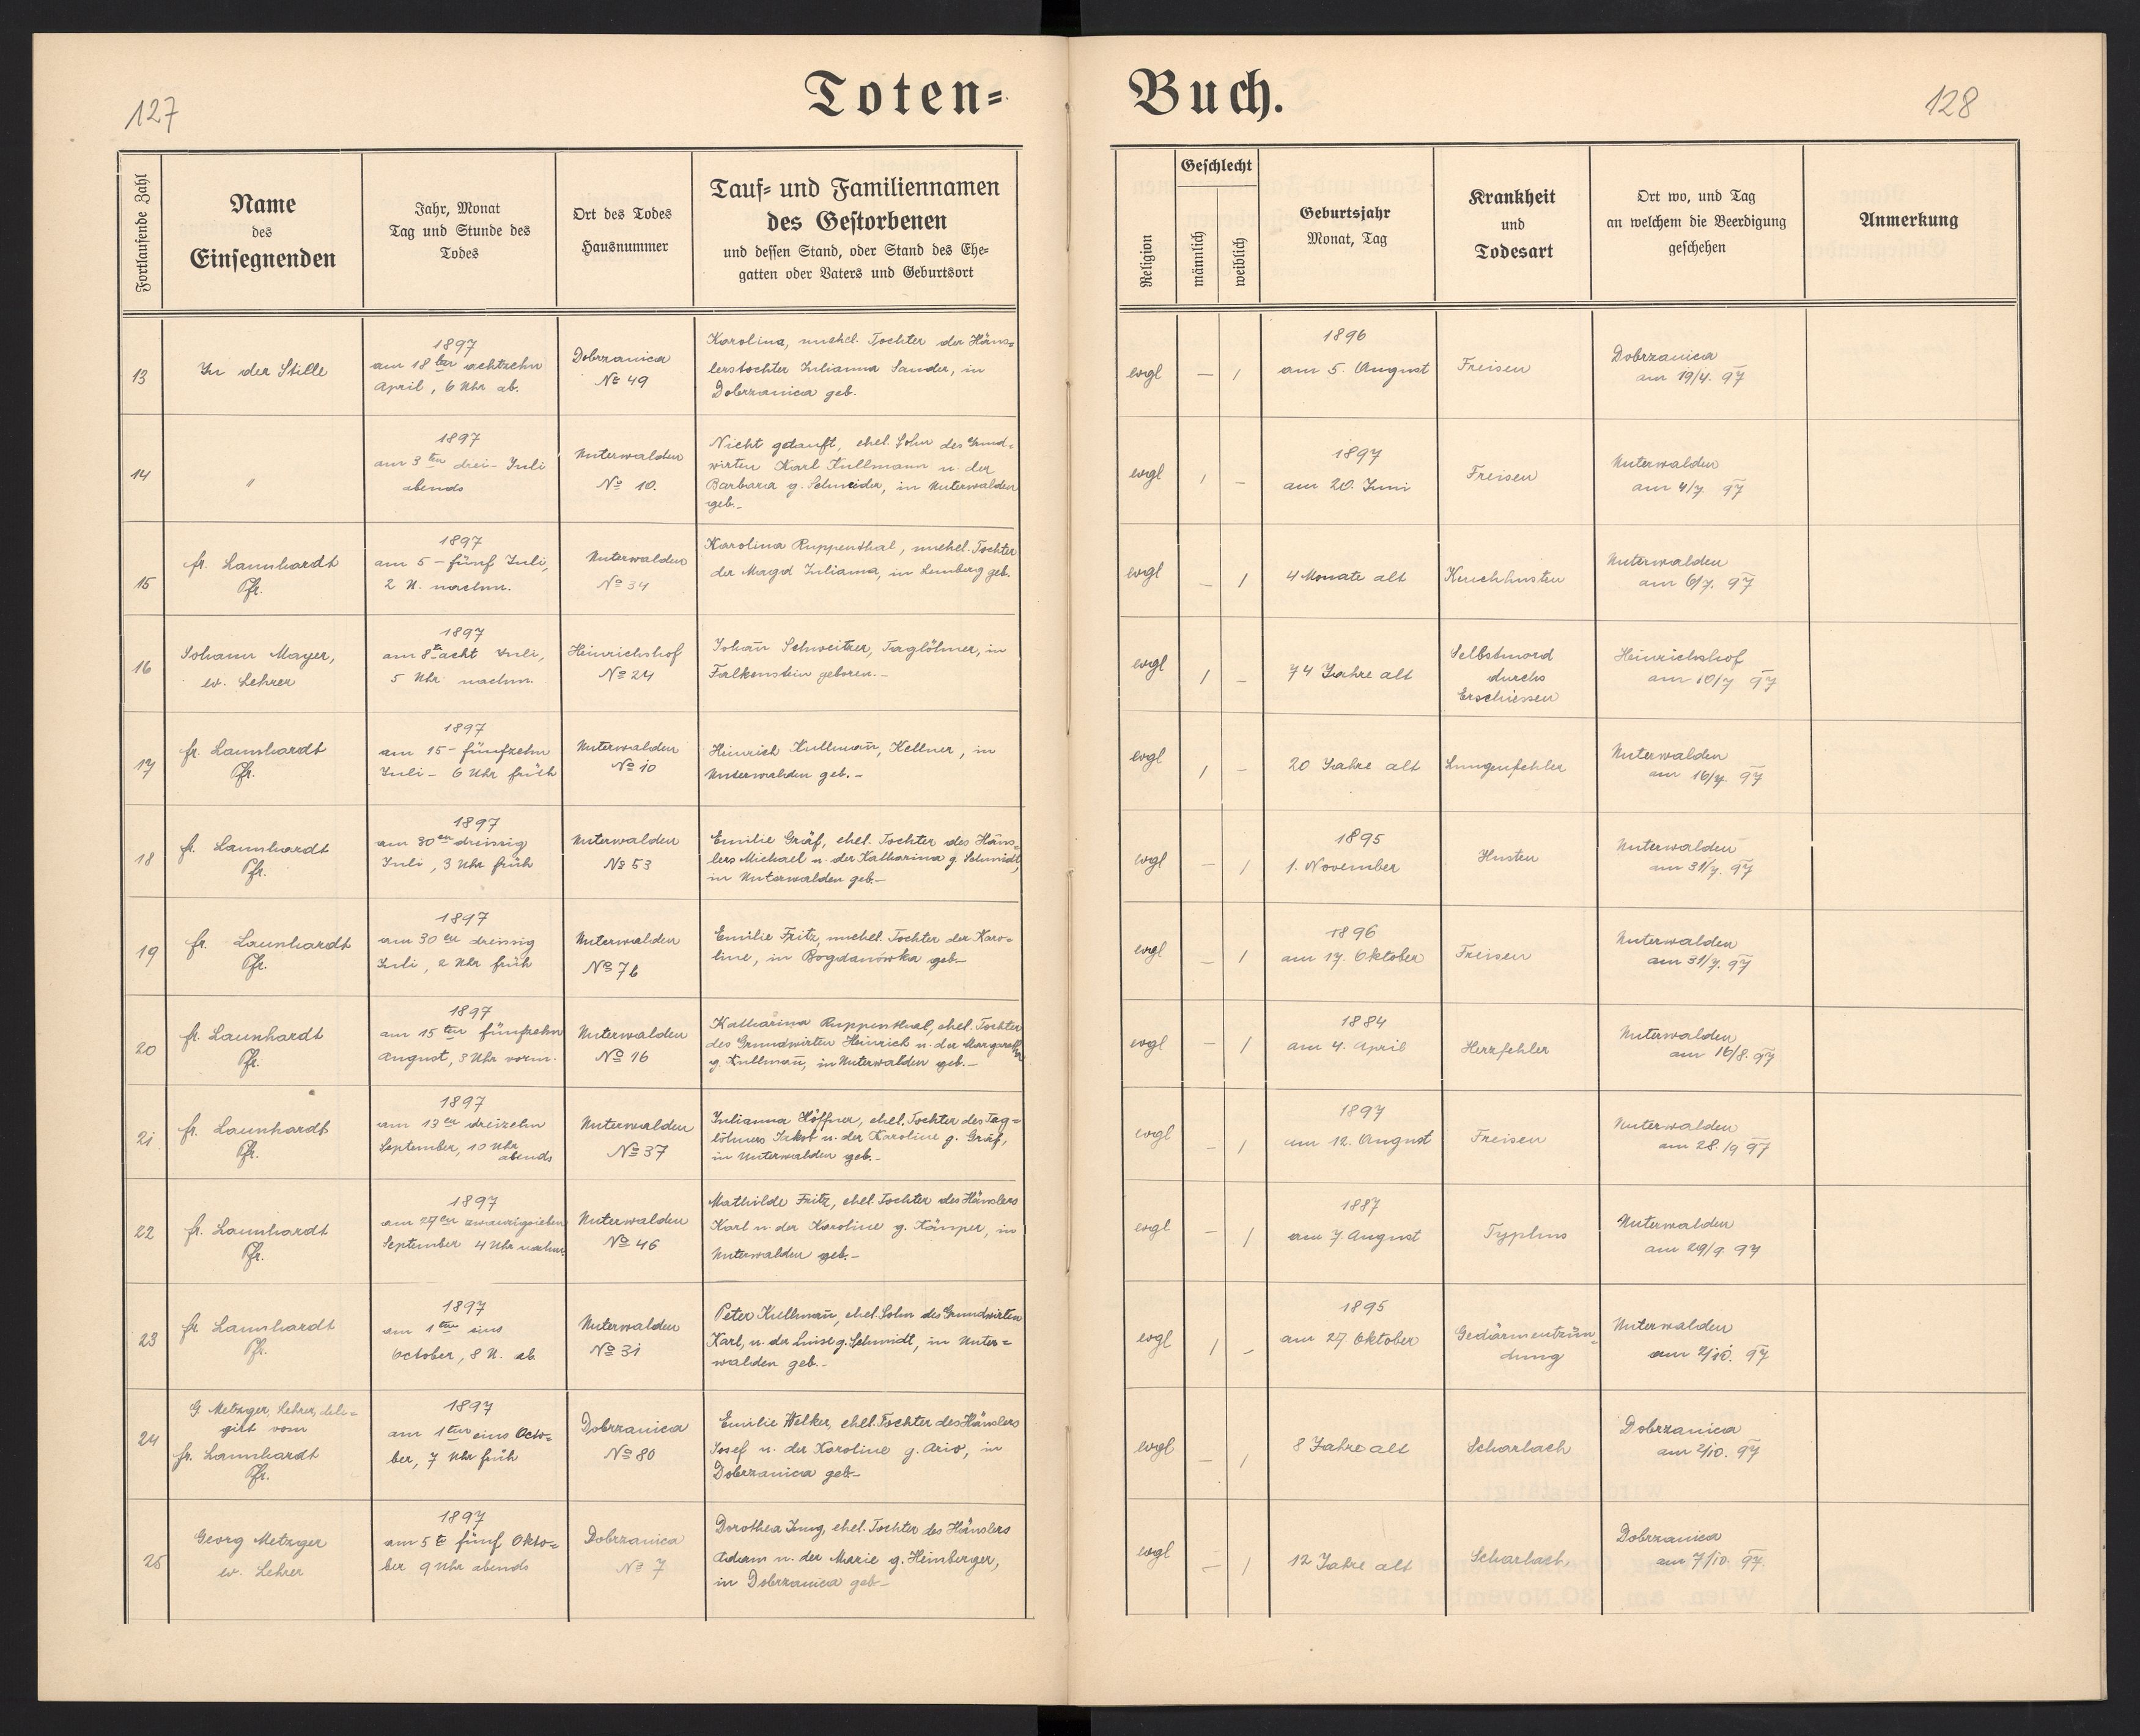 127
Toten=
Buch.
128
Fortlaufende Zahl
Name
des
Einsegnenden
Jahr, Monat
Tag und Stunde des
Todes
Ort des Todes
Hausnummer
Tauf= und Familiennamen
des Gestorbenen
und dessen Stand, oder Stand des Ehe=
gatten oder Vaters und Geburtsort
Religion
Geschlecht
männlich
weiblich
Geburtsjahr
Monat, Tag
Krankheit
und
Todesart
Ort wo, und Tag
an welchem die Beerdigung
geschehen
Anmerkung
13
In der Stille
1897
am 18ten achtzehn
April, 6 Uhr ab.
Dobrzanica
No 49
Karolina, unehel. Tochter der Häus=
lerstochter Julianna Sander, in
Dobrzanica geb.
evgl
—
1
1896
am 5. August
Freisen
Dobrzanica
am 19/4. 97
14
"
1897
am 3ten drei- Juli
abends
Unterwalden
No 10.
Nicht getauft, ehel. Sohn des Grund=
wirten Karl Kullmann u. der
Barbara g. Schneider, in Unterwalden
geb.-
evgl
1
–
1897
am 20. Juni
Freisen
Unterwalden
am 4/7. 97
15
fr. Launhardt
Pfr.
1897
am 5 – fünf Juli,
2 U. nachm.
Unterwalden
No 34
Karolina Ruppenthal, unehel. Tochter
der Magd Julianna, in Lemberg geb.
evgl
–
1
4 Monate alt
Keuchhusten
Unterwalden
am 6/7. 97
16
Johann Mayer,
ev. Lehrer
1897
am 8t acht Juli,
5 Uhr nachm.
Heinrichshof
No 24
Johan̄ Schweitzer, Taglöhner, in
Falkenstein geboren.-
evgl
1
–
74 Jahre alt
Selbstmord
durchs
Erschiessen
Heinrichshof
am 10/7 97
17
fr. Launhardt
Pfr.
1897
am 15 – fünfzehn
Juli – 6 Uhr früh
Unterwalden
No 10
Heinrich Kullman̄, Kellner, in
Unterwalden geb.-
evgl
1
–
20 Jahre alt
Lungenfehler
Unterwalden
am 16/7. 97
18
fr. Launhardt
Pfr.
1897
am 30en dreissig
Juli, 3 Uhr früh
Unterwalden
No 53
Emilie Gräf, ehel. Tochter des Häus=
lers Michael u. der Katharina g. Schmidt,
in Unterwalden geb.-
evgl
–
1
1895
1. November
Husten
Unterwalden
am 31/7. 97
19
fr. Launhardt
Pfr.
1897
am 30en dreissig
Juli, 2 Uhr früh
Unterwalden
No 76
Emilie Fritz, unehel. Tochter der Karo=
line, in Bogdanówka geb.-
evgl
–
1
1896
am 17. Oktober
Freisen
Unterwalden
am 31/7. 97
20
fr. Launhardt
Pfr.
1897
am 15ten fünfzehn
August, 3 Uhr vorm.
Unterwalden
No 16
Katharina Ruppenthal, ehel. Tochter
des Grundwirten Heinrich u. der Margaretha
g. Kullman̄, in Unterwalden geb.-
evgl
–
1
1884
am 4. April
Herzfehler
Unterwalden
am 16/8. 97
21
fr. Launhardt
Pfr.
1897
am 13en dreizehn
September, 10 Uhr
abends
Unterwalden
No 37
Julianna Höffner, ehel. Tochter des Tag=
löhners Jakob u. der Karoline g. Gräf,
in Unterwalden geb.-
evgl
–
1
1897
am 12. August
Freisen
Unterwalden
am 28./9 97
22
fr. Launhardt
Pfr.
1897
am 27en zwanzigsieben
September 4 Uhr nachm.
Unterwalden
No 46
Mathilde Fritz, ehel. Tochter des Häuslers
Karl u. der Karoline g. Kämper, in
Unterwalden geb.-
evgl
–
1
1887
am 7 August
Typhus
Unterwalden
am 29/9. 97
23
fr. Launhardt
Pfr.
1897
am 1ten eins
October, 8 U. ab.
Unterwalden
No 31
Peter Kullman̄, ehel. Sohn des Grundwirten
Karl, u. der Luise g. Schmidt, in Unter=
walden geb.-
evgl
1
–
1895
am 27 Oktober
Gedärmentzün-
dung
Unterwalden
am 2/10. 97
24
G. Metzger, Lehrer, dele=
girt vom
fr. Launhardt
Pfr.
1897
am 1ten eins Octo=
ber, 7 Uhr früh
Dobrzanica
No 80
Emilie Welker, ehel. Tochter des Häuslers
Josef u. der Karoline g. Ario, in
Dobrzanica geb.-
evgl
–
1
8 Jahre alt
Scharlach
Dobrzanica
am 2/10. 97
25
Georg Metzger
ev. Lehrer
1897
am 5t fünf Okto=
ber 9 Uhr abends
Dobrzanica
No 7
Dorothea Jung, ehel. Tochter des Häuslers
Adam u. der Marie g. Heimberger,
in Dobrzanica geb.-
evgl
–
1
12 Jahre alt
Scharlach
Dobrzanica
am 7/10. 97.